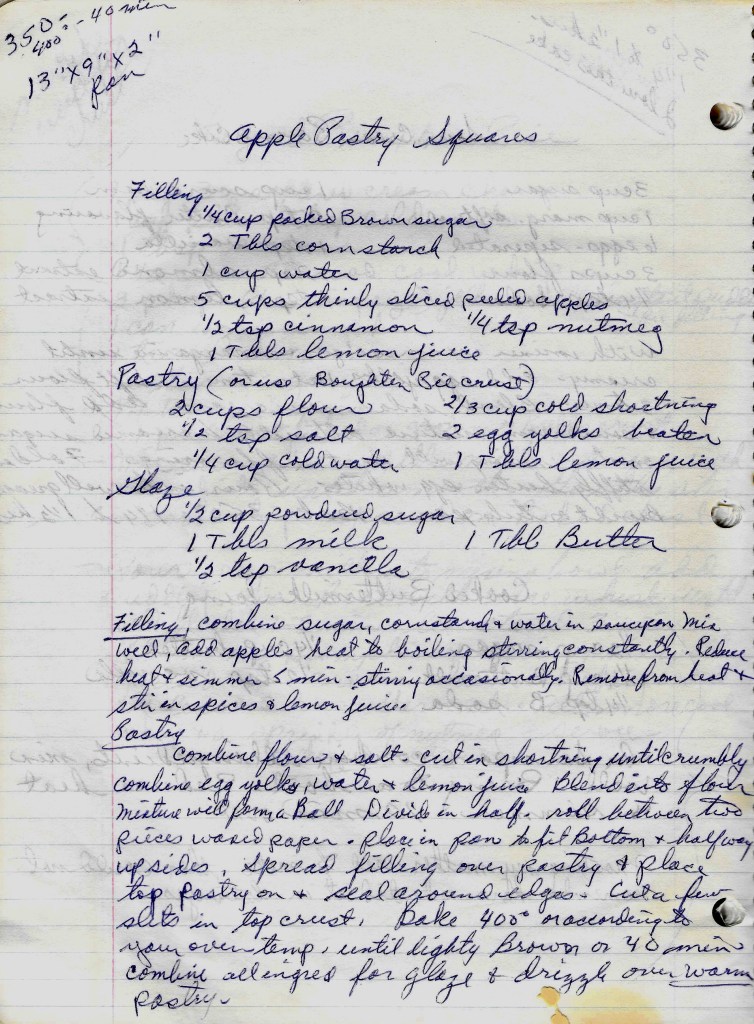 350° - 40 min
400°
13"x9"x2"
pan
Apple Pastry Squares
Filling
1/4 cup packed Brown sugar
2 Tbls cornstarch
1 cup water
5 cups thinly sliced peeled apples
1/2 tsp cinnamon 1/4 tsp nutmeg
1 Tbls lemon juice
Pastry (or use Boughten Pie crust)
2 cups flour 2/3 cup cold shortning
1/2 tsp salt 2 egg yolks beaten
1/4 cup cold water 1 Tbls lemon juice
Glaze
1/2 cup powdered sugar
1 Tbls milk 1 Tbl Butter
1/2 tsp vanilla
Filling, combine sugar, cornstarch, + water in saucepan mix
well, add apples heat to boiling stirring constantly. Reduce
heat + simmer 5 min - stirring occasionally. Remove from heat +
stir in spices & lemon juice.
Pastry
combine flour + salt. cut in shortning until crumbly
combine egg yolks, water + lemon juice Blend into flour
mixture will form a Ball Divide in half. roll between two
pieces waxed paper. place in pan to fit Bottom + halfway
up sides, spread filling over pastry & place
top pastry on + seal around edges. Cut a few
slits in top crust. Bake 400° or according to
your oven temp. until lighty Brown or 40 min
combine all ingred for glaze & drizzle over warm
pastry.